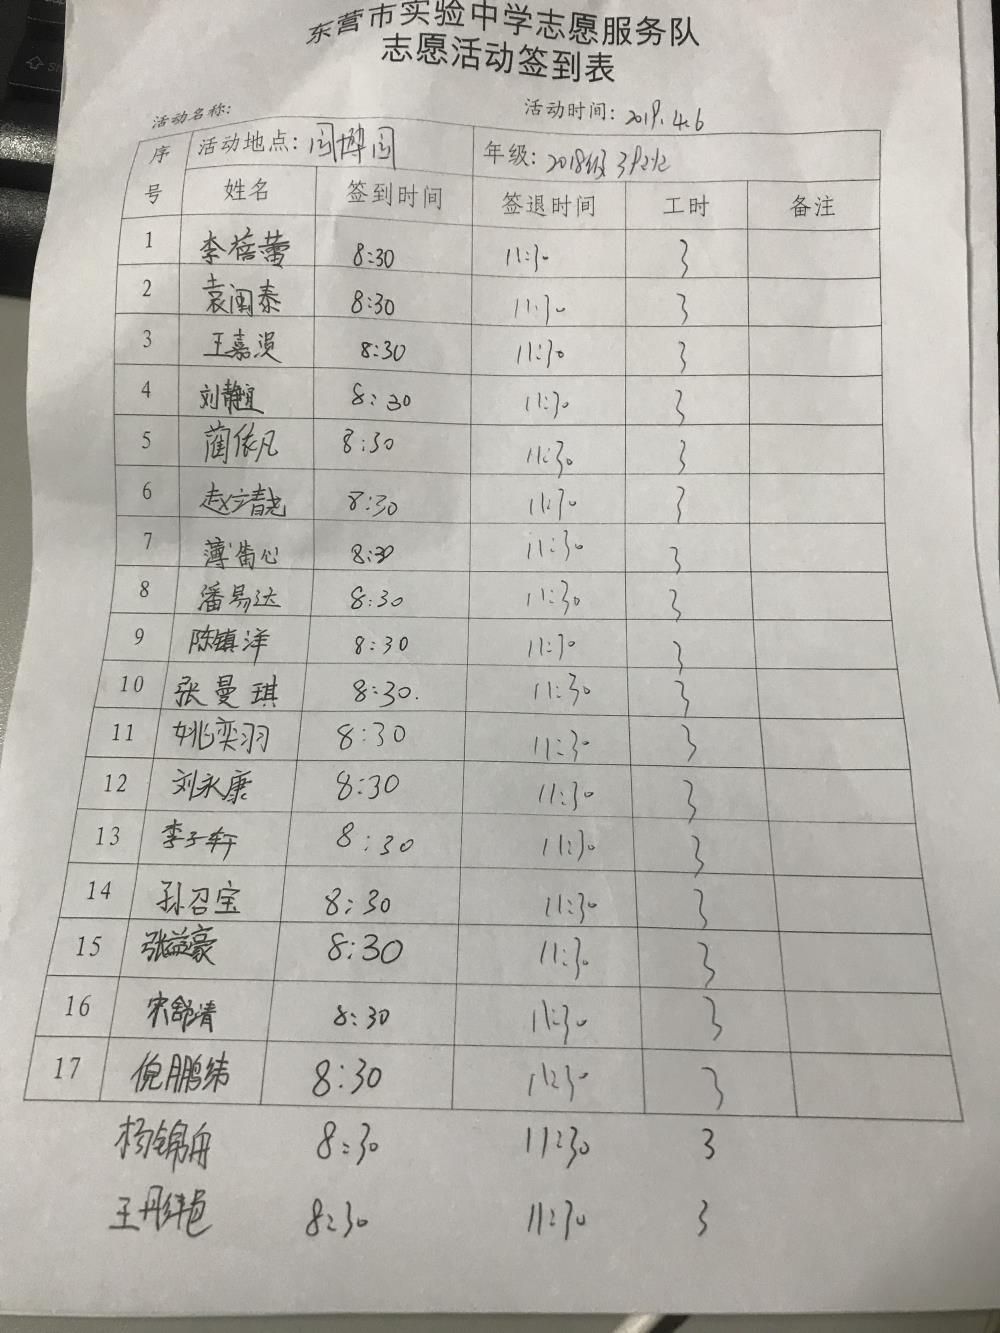 东营市实验中学志愿服务队
志愿活动签到表
活动名称: 活动时间: 2019.4.6
序号 活动地点: 园博园 年级: 2018级
姓名 签到时间 签退时间 工时 备注
1 李蓓蕾 8:30 11:30 3
2 袁闽泰 8:30 11:30 3
3 王嘉 8:30 11:30 3
4 刘静宜 8:30 11:30 3
5 蔺依凡 8:30 11:30 3
6 赵 8:30 11:30 3
7 薄 心 8:30 11:30 3
8 潘易达 8:30 11:30 3
9 陈镇洋 8:30 11:30 3
10 张曼琪 8:30. 11:30 3
11 姚奕羽 8:30 11:30 3
12 刘永康 8:30 11:30 3
13 李子轩 8:30 11:30 3
14 孙召宝 8:30 11:30 3
15 张益豪 8:30 11:30 3
16 宋舒清 8:30 11:30 3
17 倪鹏纬 8:30 11:30 3
杨锦舟 8:30 11:30 3
王丹 8:30 11:30 3